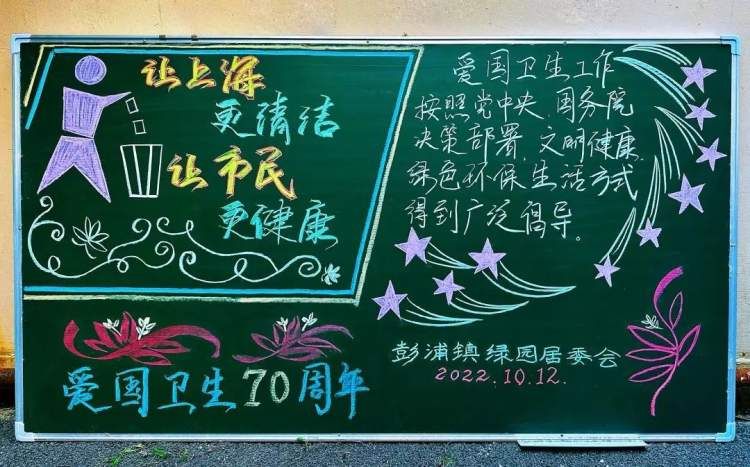 让上海
更清结
让市民
更健康
爱国卫生70周年
爱国卫生工作
按照党中央、国务院
决策部署，文明健康、
绿色环保生活方式
得到广泛倡导。
彭浦镇绿园居委会
2022.10.12.